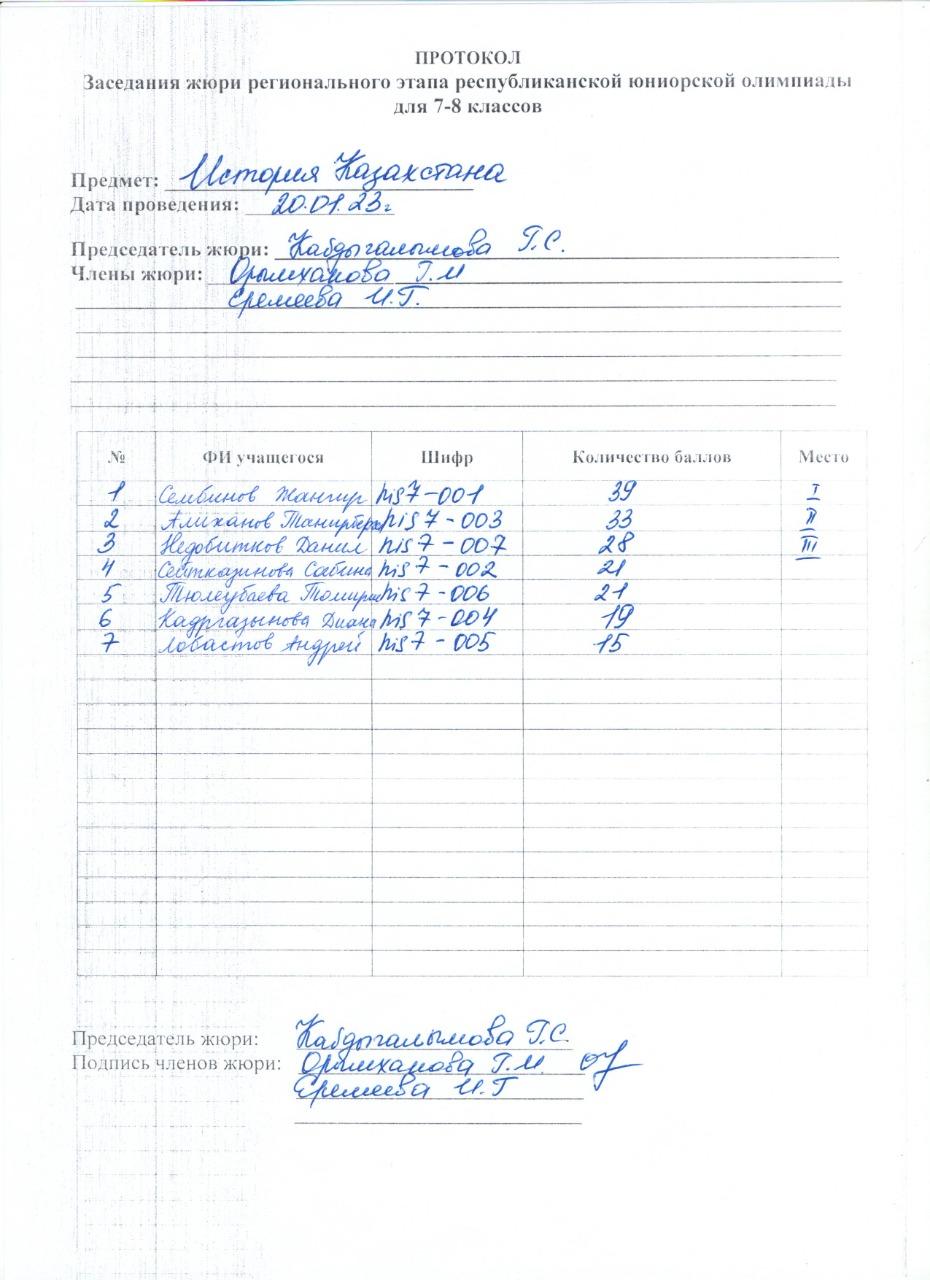 ПРОТОКОЛ
Заседания жюри регионального этапа республиканской юниорской олимпиады
для 7-8 классов
Предмет: История Казахстана
Дата проведения: 20.01.23г
Председатель жюри: Кабдыгалымова Г.С.
Члены жюри: Орымханова Г.М
Еремеева И.Г.
№ ФИ учащегося Шифр Количество баллов Место
1 Сембинов Жангир his7-001 39 I
2 Алиханов his7-003 33 II
3 Недобитков Данил his7-007 28 III
4 Сейтказинова Сабина his7-002 21
5 Тюлеубаева his7-006 21
6 Кадргазынова Диана his7-004 19
7 Лобастов Андрей his7-005 15
Председатель жюри: Кабдыгалымова Г.С.
Подпись членов жюри: Орымханова Г.М.
Еремеева И.Г